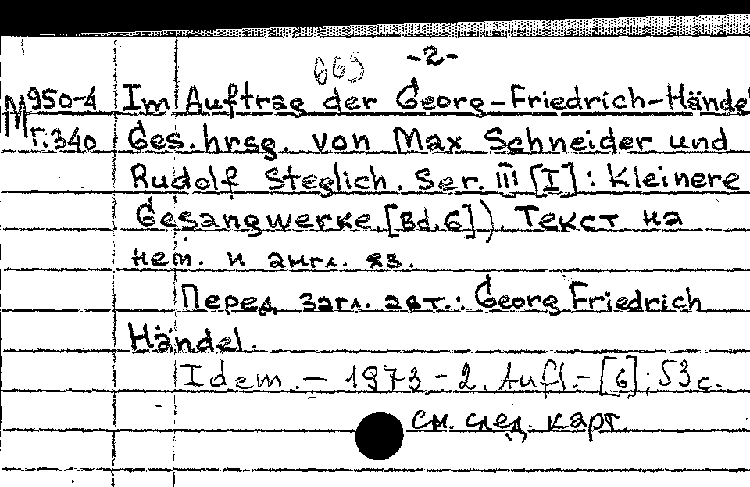 663 -2-
М950-4 Im Auftrag der Georg-Friedrich-Händel
Г.340 Ges. hrsg. von Max Schneider und
Rudolf Steglich. Ser. III [I]: Kleinere
Gesangwerke.[Bd.6]). Текст на
нем. и англ. яз.
Перед загл. авт.: Georg Friedrich
Händel.
Idem. - 1973 - 2. Aufl. - [6], 53 с.
см. след. карт.